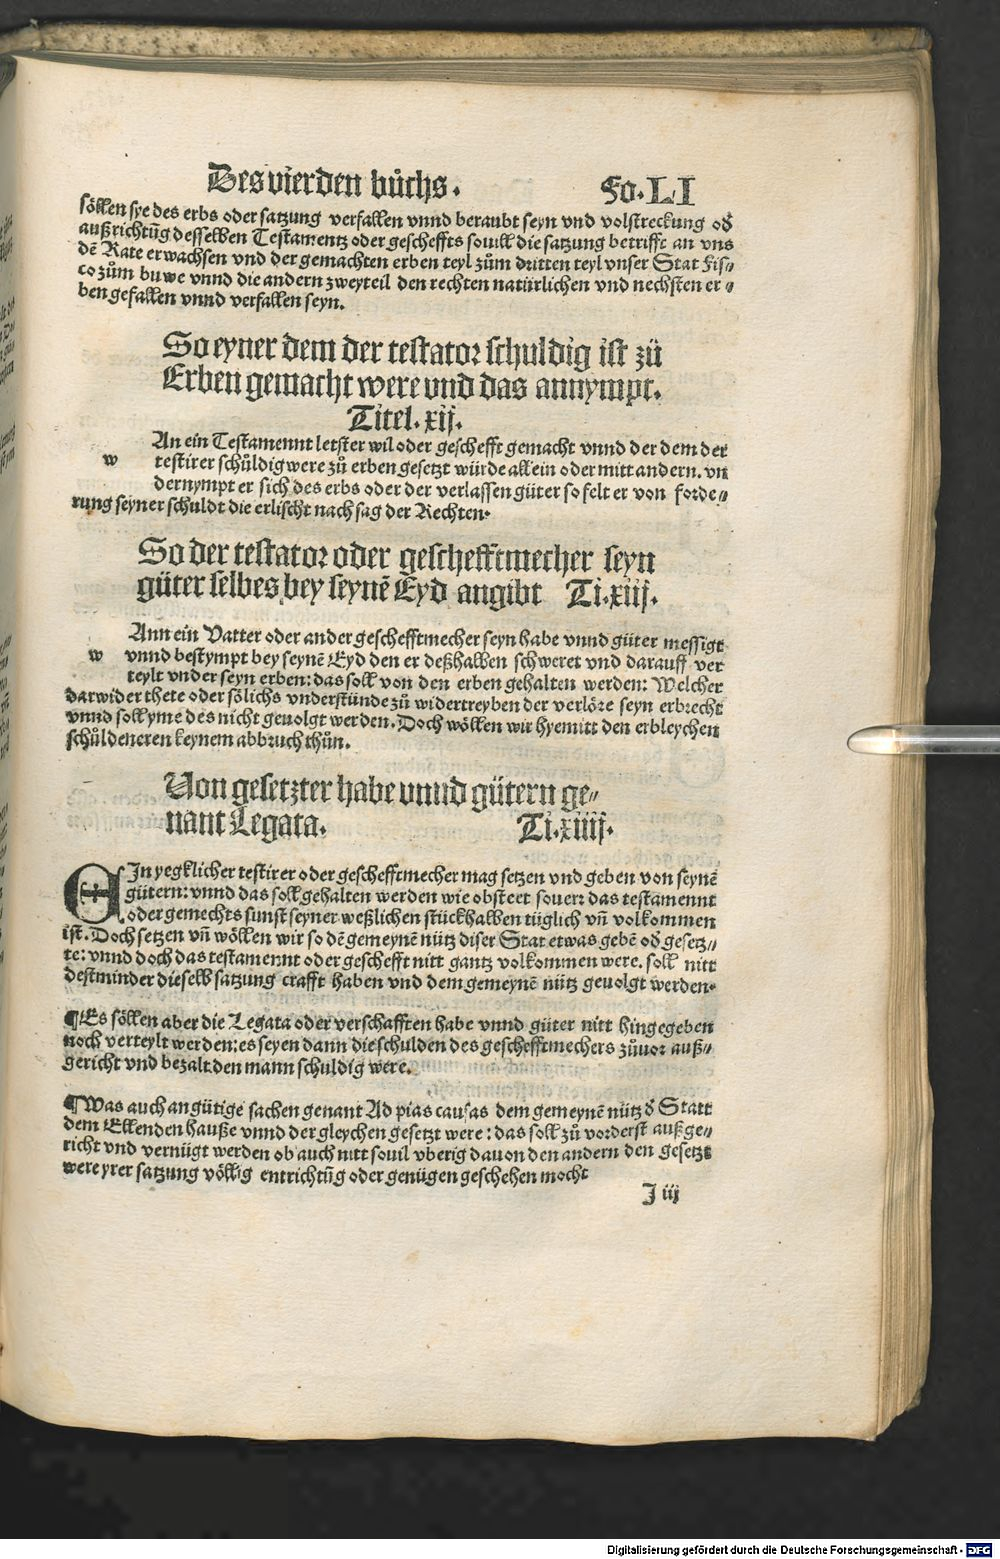 Des vierden bůchs. Fo. LI
söllen sye des erbs oder satzung verfallen vnnd beraubt seyn vnd volstreckung oď
außrichtũg desselben Testamentz oder gescheffts souill die satzung betriffe an vns
dẽ Rate erwachsen vnd der gemachten erben teyl zům dritten teyl vnser Stat Fis⸗
co zům buwe vnnd die andern zweyteil den rechten natürlichen vnd nechsten er⸗
ben gefallen vnnd verfallen seyn.
So eyner dem der testator schuldig ist zů
Erben gemacht were vnd das annympt.
Titel. xij.
w An ein Testamennt letster wil oder geschefft gemacht vnnd der dem der
testirer schůldig were zů erben gesetzt würde allein oder mitt andern. vn
dernympt er sich des erbs oder der verlassen güter so felt er von forde⸗
rung seyner schuldt die erlischt nach sag der Rechten.
So der testator oder geschefftmecher seyn
güter selbes bey seynẽ Eyd angibt Ti. xiij.
w Ann ein Vatter oder ander geschefftmecher seyn habe vnnd güter messigt
vnnd bestympt bey seynẽ Eyd den er deßhalben schweret vnd darauff ver
teylt vnder seyn erben: das soll von den erben gehalten werden: Welcher
darwider thete oder sölichs vnderstünde zů widertreyben der verlöre seyn erbrecht
vnnd soll yme des nicht geuolgt werden. Doch wöllen wir hyemitt den erbleychen
schůldeneren keynem abbruch thůn.
Von gesetzter habe vnnd gütern ge⸗
nant Legata. Ti. xiiij.
EIn yegklicher testirer oder geschefftmecher mag setzen vnd geben von seynẽ
gütern: vnnd das soll gehalten werden wie obsteet souerr das testamennt
oder gemechts sunst seyner weßlichen stückhalben tüglich vñ volkommen
ist. Doch setzen vñ wöllen wir so dẽ gemeynẽ nütz diser Stat etwas gebẽ oď gesetz⸗
te: vnnd doch das testamennt oder geschefft nitt gantz volkommen were. soll nitt
destminder dieselb satzung crafft haben vnd dem gemeynẽ nütz geuolgt werden.
¶ Es söllen aber die Legata oder verschafften habe vnnd güter nitt hingegeben
noch verteylt werden: es seyen dann die schulden des geschefftmechers zůuor auß⸗
gericht vnd bezalt den mann schuldig were.
¶ Was auch an gütige sachen genant Ad pias causas dem gemeynẽ nütz ď Statt
dem Ellenden hauße vnnd der gleychen gesetzt were: das soll zů vorderst außge⸗
richt vnd vernügt werden ob auch nitt souil vberig dauon den andern den gesetzt
were yrer satzung völlig entrichtũg oder genügen geschehen mocht
J iij
Digitalisierung gefördert durch die Deutsche Forschungsgemeinschaft - DFG